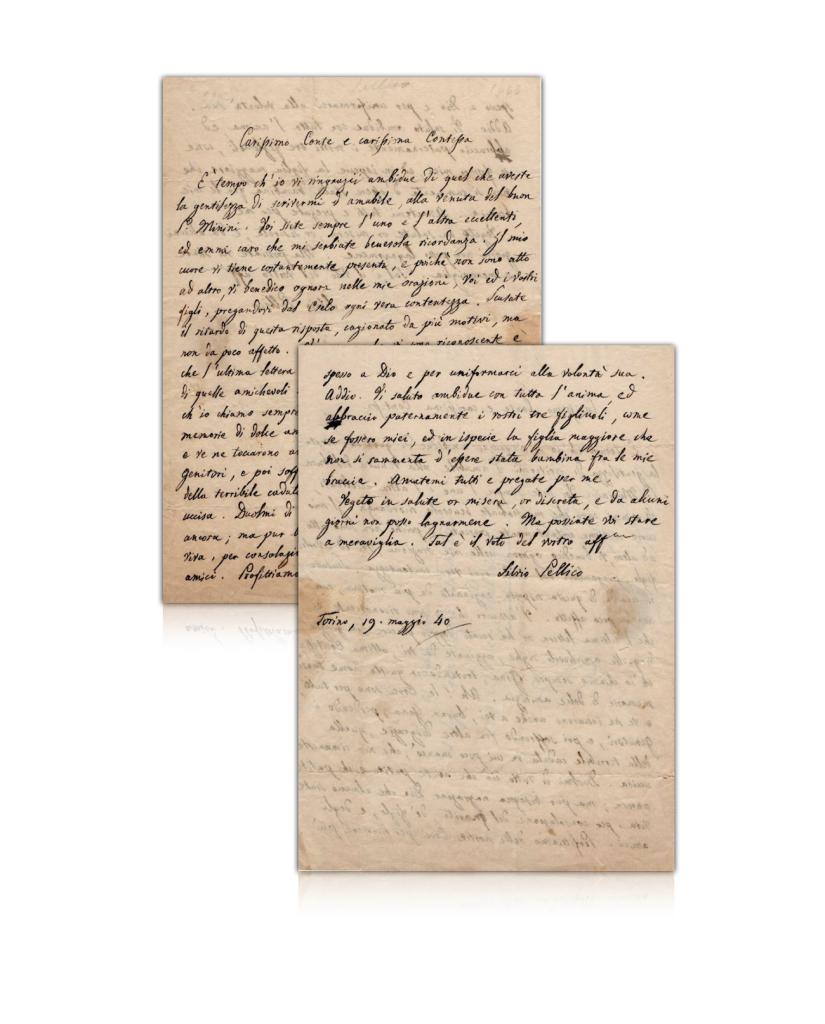 Carissimo Conte e carissima Contessa
È tempo ch'io vi ringrazii ambidue di quel che aveste
la gentilezza di scrivermi d'amabile, alla venuta del buon
P. Minini. Voi siete sempre l'uno e l'altra eccellenti,
ed emmi caro che mi serbiate benevola ricordanza. Il mio
cuore vi tiene costantemente presenti, e poichè non sono atto
ad altro, vi benedico ognora nelle mie orazioni, Voi ed i vostri
figli, pregandovi dal Cielo ogni vera contentezza. Scusate
il ritardo di questa risposta, cagionato da più motivi, ma
non da poco affetto.
che l'ultima lettera
di quelle amichevoli
ch'io chiamo sempre
memorie di dolce
e ve ne toccarono
genitori, e poi
della terribile
uccisa. Duolmi di
ancora; ma pur
viva, per
amici. Profittiamo
spesso a Dio e per uniformarci alla volontà sua.
Addio. Vi saluto ambidue con tutta l'anima, ed
abbraccio paternamente i vostri tre figlivoli, come
se fossero miei, ed in ispecie la figlia maggiore che
non si rammenta d'essere stata bambina fra le mie
braccia. Amatemi tutti e pregate per me
Vegeto in salute or misera, or discreta, e da alcuni
giorni non posso lagnarmene. Ma possiate Voi stare
a meraviglia. Tal è il voto del vostro aff
Silvio Pellico
Torino, 19. maggio 40